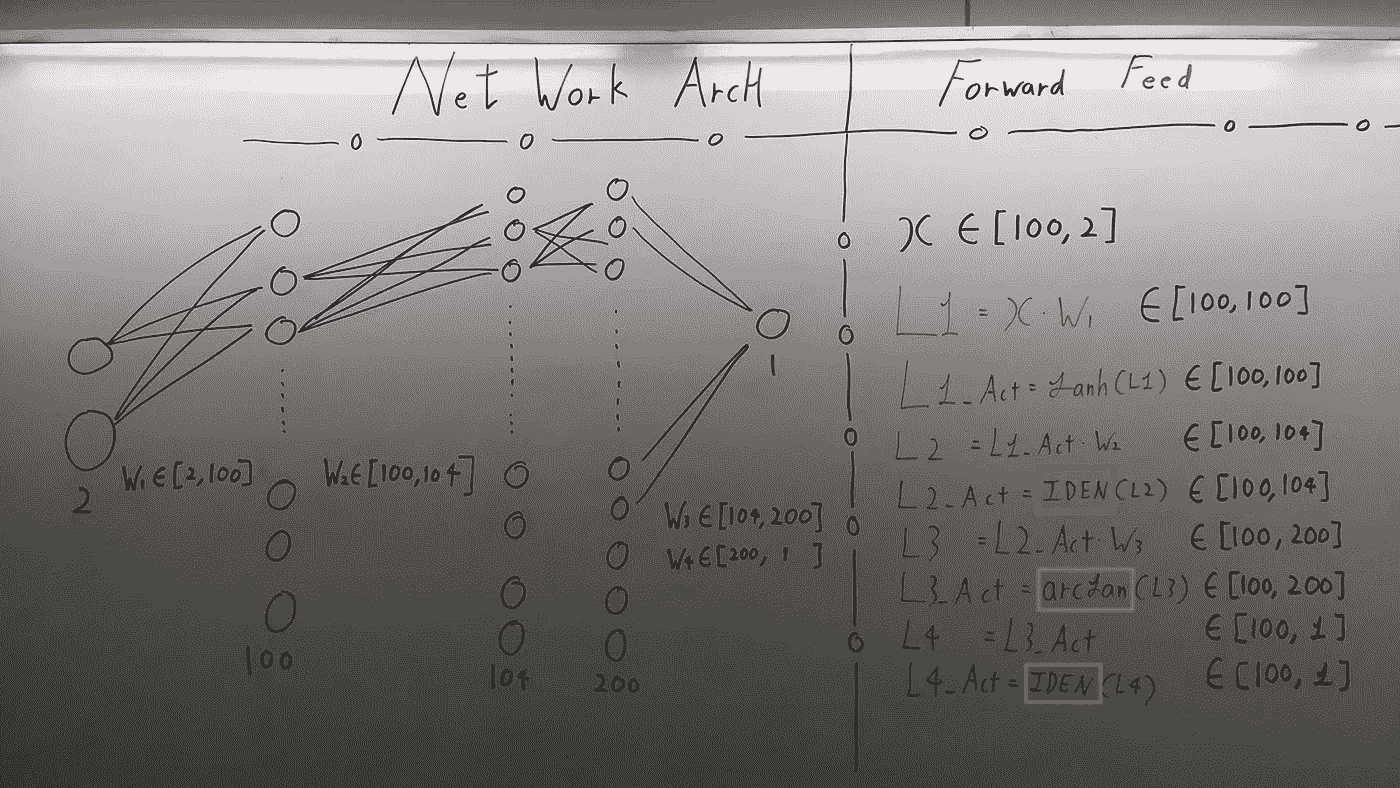 Net Work ArcH
Forward Feed
W₁ ∈ [2,100]
W₂ ∈ [100,104]
W₃ ∈ [104,200]
W₄ ∈ [200, 1 ]
2
100
104
200
1
x ∈ [100,2]
L1 = x · W₁ ∈ [100,100]
L1_Act = tanh(L1) ∈ [100,100]
L2 = L1_Act · W₂ ∈ [100,104]
L2_Act = IDEN(L2) ∈ [100,104]
L3 = L2_Act · W₃ ∈ [100,200]
L3_Act = arctan(L3) ∈ [100,200]
L4 = L3_Act ∈ [100, 1]
L4_Act = IDEN(L4) ∈ [100, 1]